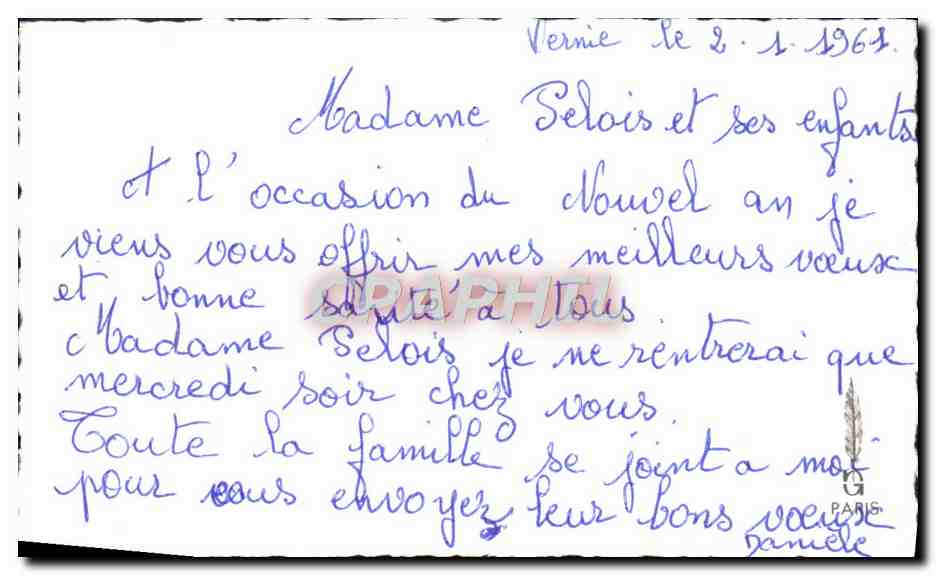 Vernie le 2.1.1961.
Madame Pelois et ses enfants
A l'occasion du Nouvel an je
viens vous offrir mes meilleurs vœux
et bonne santé a tous
Madame Pelois je ne rentrerai que
mercredi soir chez vous.
Toute la famille se joint a moi
pour vous envoyez leur bons vœux
Danièle
CPAPHIL
PARIS